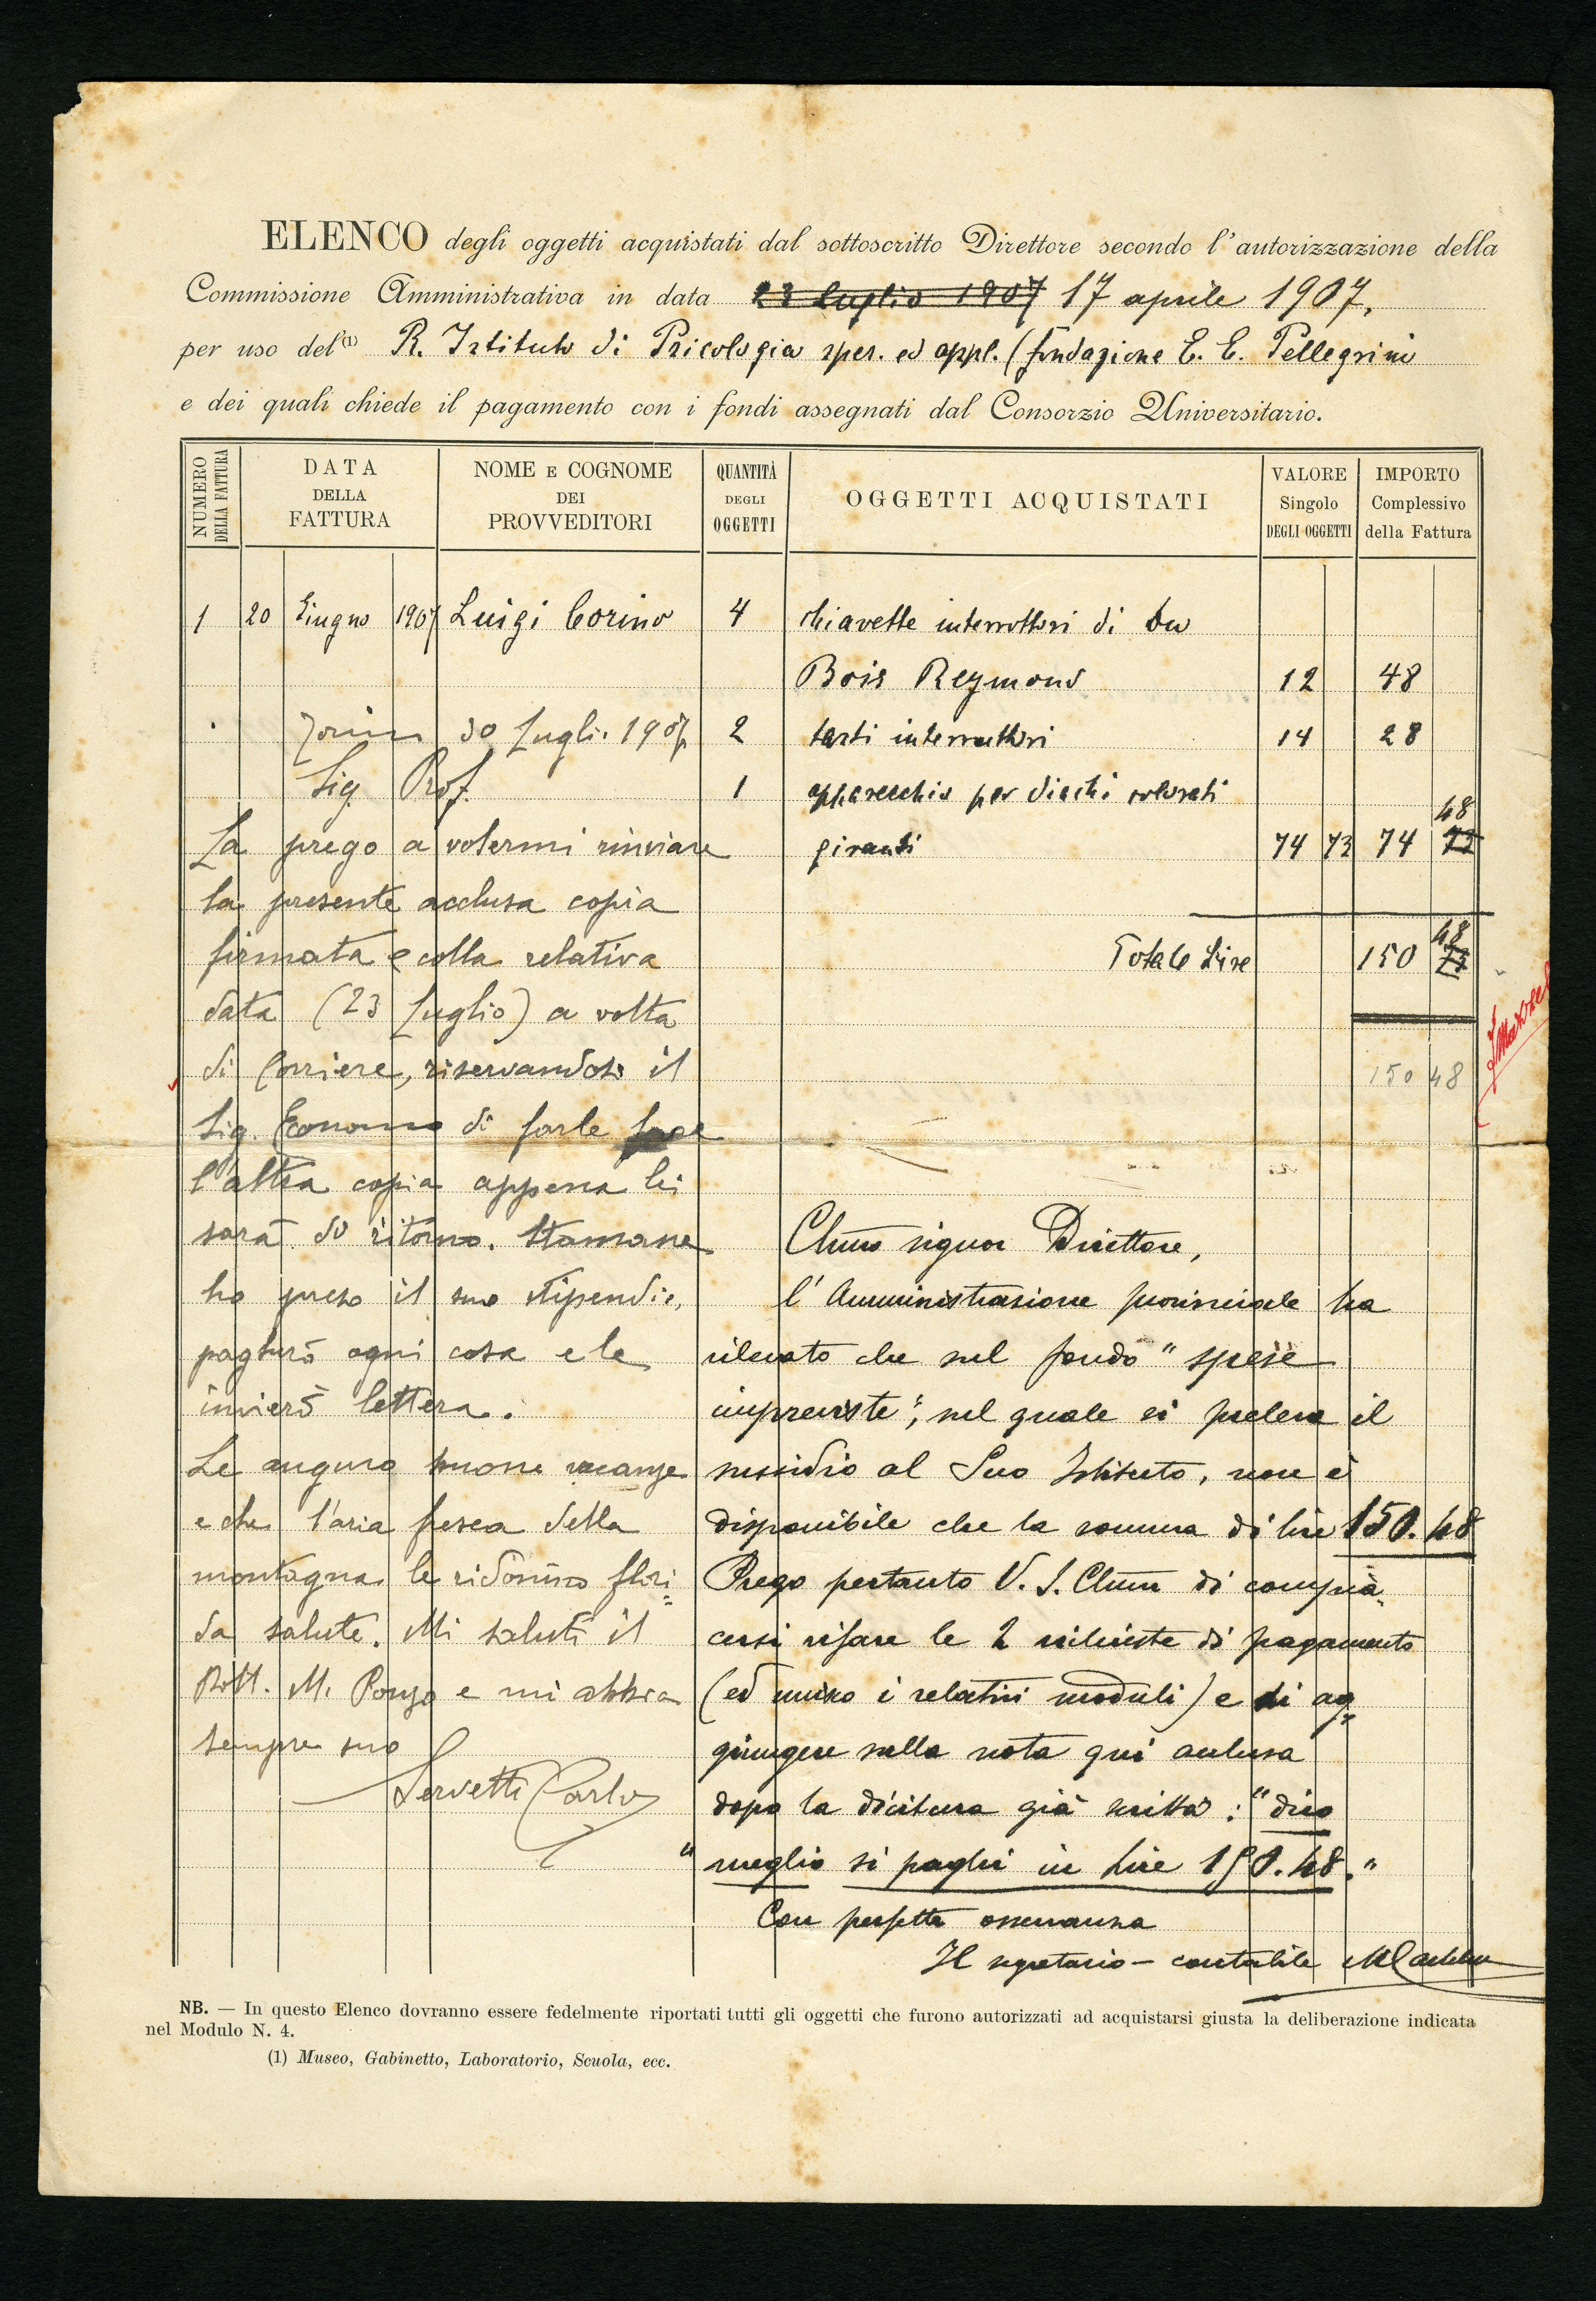 ELENCO degli oggetti acquistati dal sottoscritto Direttore secondo l'autorizzazione della
Commissione Amministrativa in data 23 luglio 1907 17 aprile 1907,
per uso del (1) R. Istituto di Psicologia sper. ed appl. (fondazione E. E. Pellegrini
e dei quali chiede il pagamento con i fondi assegnati dal Consorzio Universitario.
NUMERO DELLA FATTURA
DATA DELLA FATTURA
NOME E COGNOME DEI PROVVEDITORI
QUANTITÀ DEGLI OGGETTI
OGGETTI ACQUISTATI
VALORE Singolo DEGLI OGGETTI
IMPORTO Complessivo della Fattura
1 20 Giugno 1907 Luigi Corino 4 chiavette interruttori di Du
Bois Reymond 12 48
2 tasti interruttori 14 28
1 apparecchio per dischi colorati
48
giranti 74 73 74 73
48
Totale Lire 150 73
150 48
Torino 30 Luglio 1907
Sig. Prof.
La prego a volermi rinviare
la presente acclusa copia
firmata e colla relativa
data (23 Luglio) a volta
di Corriere, riservandosi il
Sig. Economo di farle fare
l'altra copia appena lei
sarà di ritorno. Stamane
ho preso il suo stipendio,
pagherò ogni cosa e le
invierò lettera.
Le auguro buone vacanze
e che l'aria fresca della
montagna le ridonino flori=
da salute. Mi saluti il
Dott. M. Ponzo e mi abbia
sempre suo
Servetti Carlo
Chmo signor Direttore,
l'Amministrazione provinciale ha
rilevato che sul fondo "spese
impreviste", sul quale si preleva il
sussidio al Suo Istituto, non è
disponibile che la somma di lire 150.48
Prego pertanto V. S. Chma di compia=
cersi rifare le 2 richieste di pagamento
(ed unisco i relativi moduli) e di ag=
giungere sulla nota qui acclusa
dopo la dicitura già scritta: "dico
"meglio si paghi in Lire 150.48."
Con perfetta osservanza
Il segretario - contabile
NB. — In questo Elenco dovranno essere fedelmente riportati tutti gli oggetti che furono autorizzati ad acquistarsi giusta la deliberazione indicata
nel Modulo N. 4.
(1) Museo, Gabinetto, Laboratorio, Scuola, ecc.